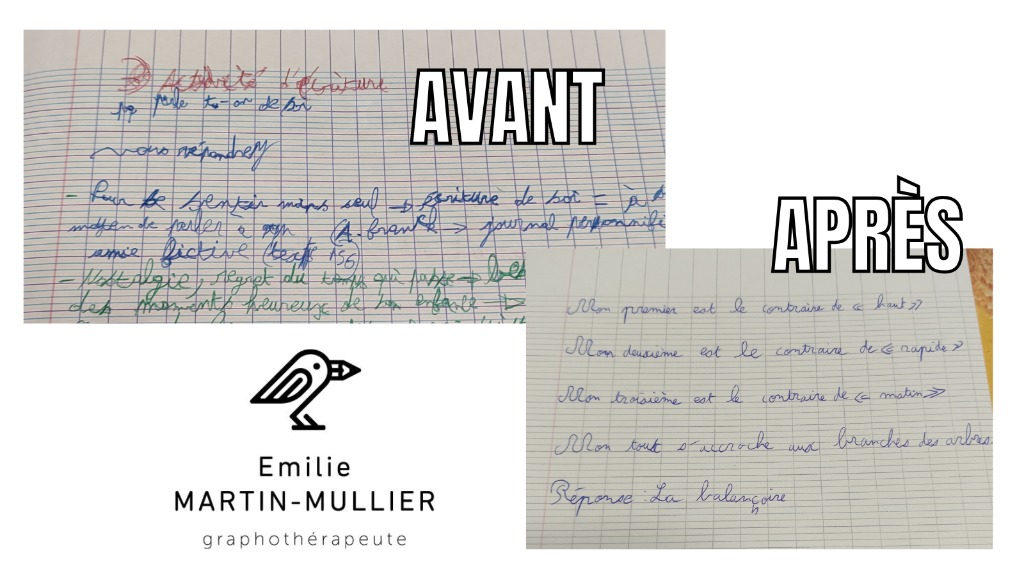 AVANT
Activité d'écriture
parle t-on de soi
vous répondrez
- Pour se sentir moins seul → écriture de soi = À
de parler à (A. Frank → journal personnifi
amie fictive (texte
- Nostalgie, regret du temps qui passe →
des moments heureux de son enfance →
APRÈS
Mon premier est le contraire de « haut »
Mon deuxième est le contraire de « rapide »
Mon troisième est le contraire de « matin »
Mon tout s'accroche aux branches des arbres.
Réponse : La balançoire
Emilie
MARTIN-MULLIER
graphothérapeute